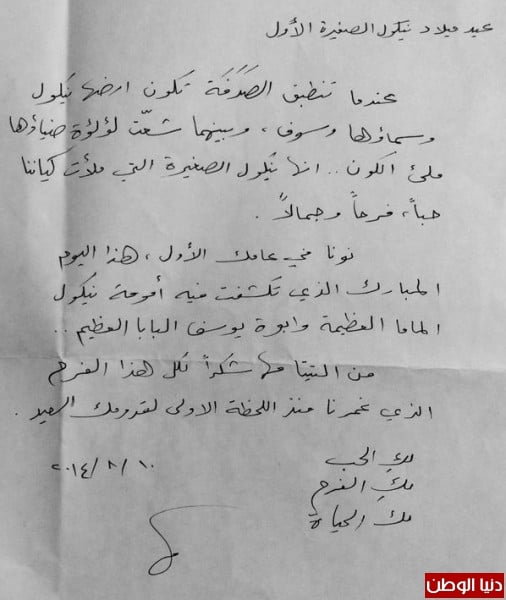 عيد ميلاد نيكول الصغيرة الأول
عندما تنطبق الصَدَفَة تكون ارضها نيكول
وسماؤها وسوف، وبينهما شعّت لؤلؤة ضياؤها
ملئ الكون.. انها نيكول الصغيرة التي ملأت كياننا
حباً، فرحاً وجمالاً.
نونا في عامك الأول، هذا اليوم
المبارك الذي تكشفت فيه أمومة نيكول
الماما العظيمة وابوة يوسف البابا العظيم..
من التيتا مها شكراً لكل هذا الفرح
الذي غمرنا منذ اللحظة الاولى لقدومك السعيد.
لكِ الحب
لكِ الفرح
لك الحياة
٢٠١٤/٨/١٠
دنيا الوطن